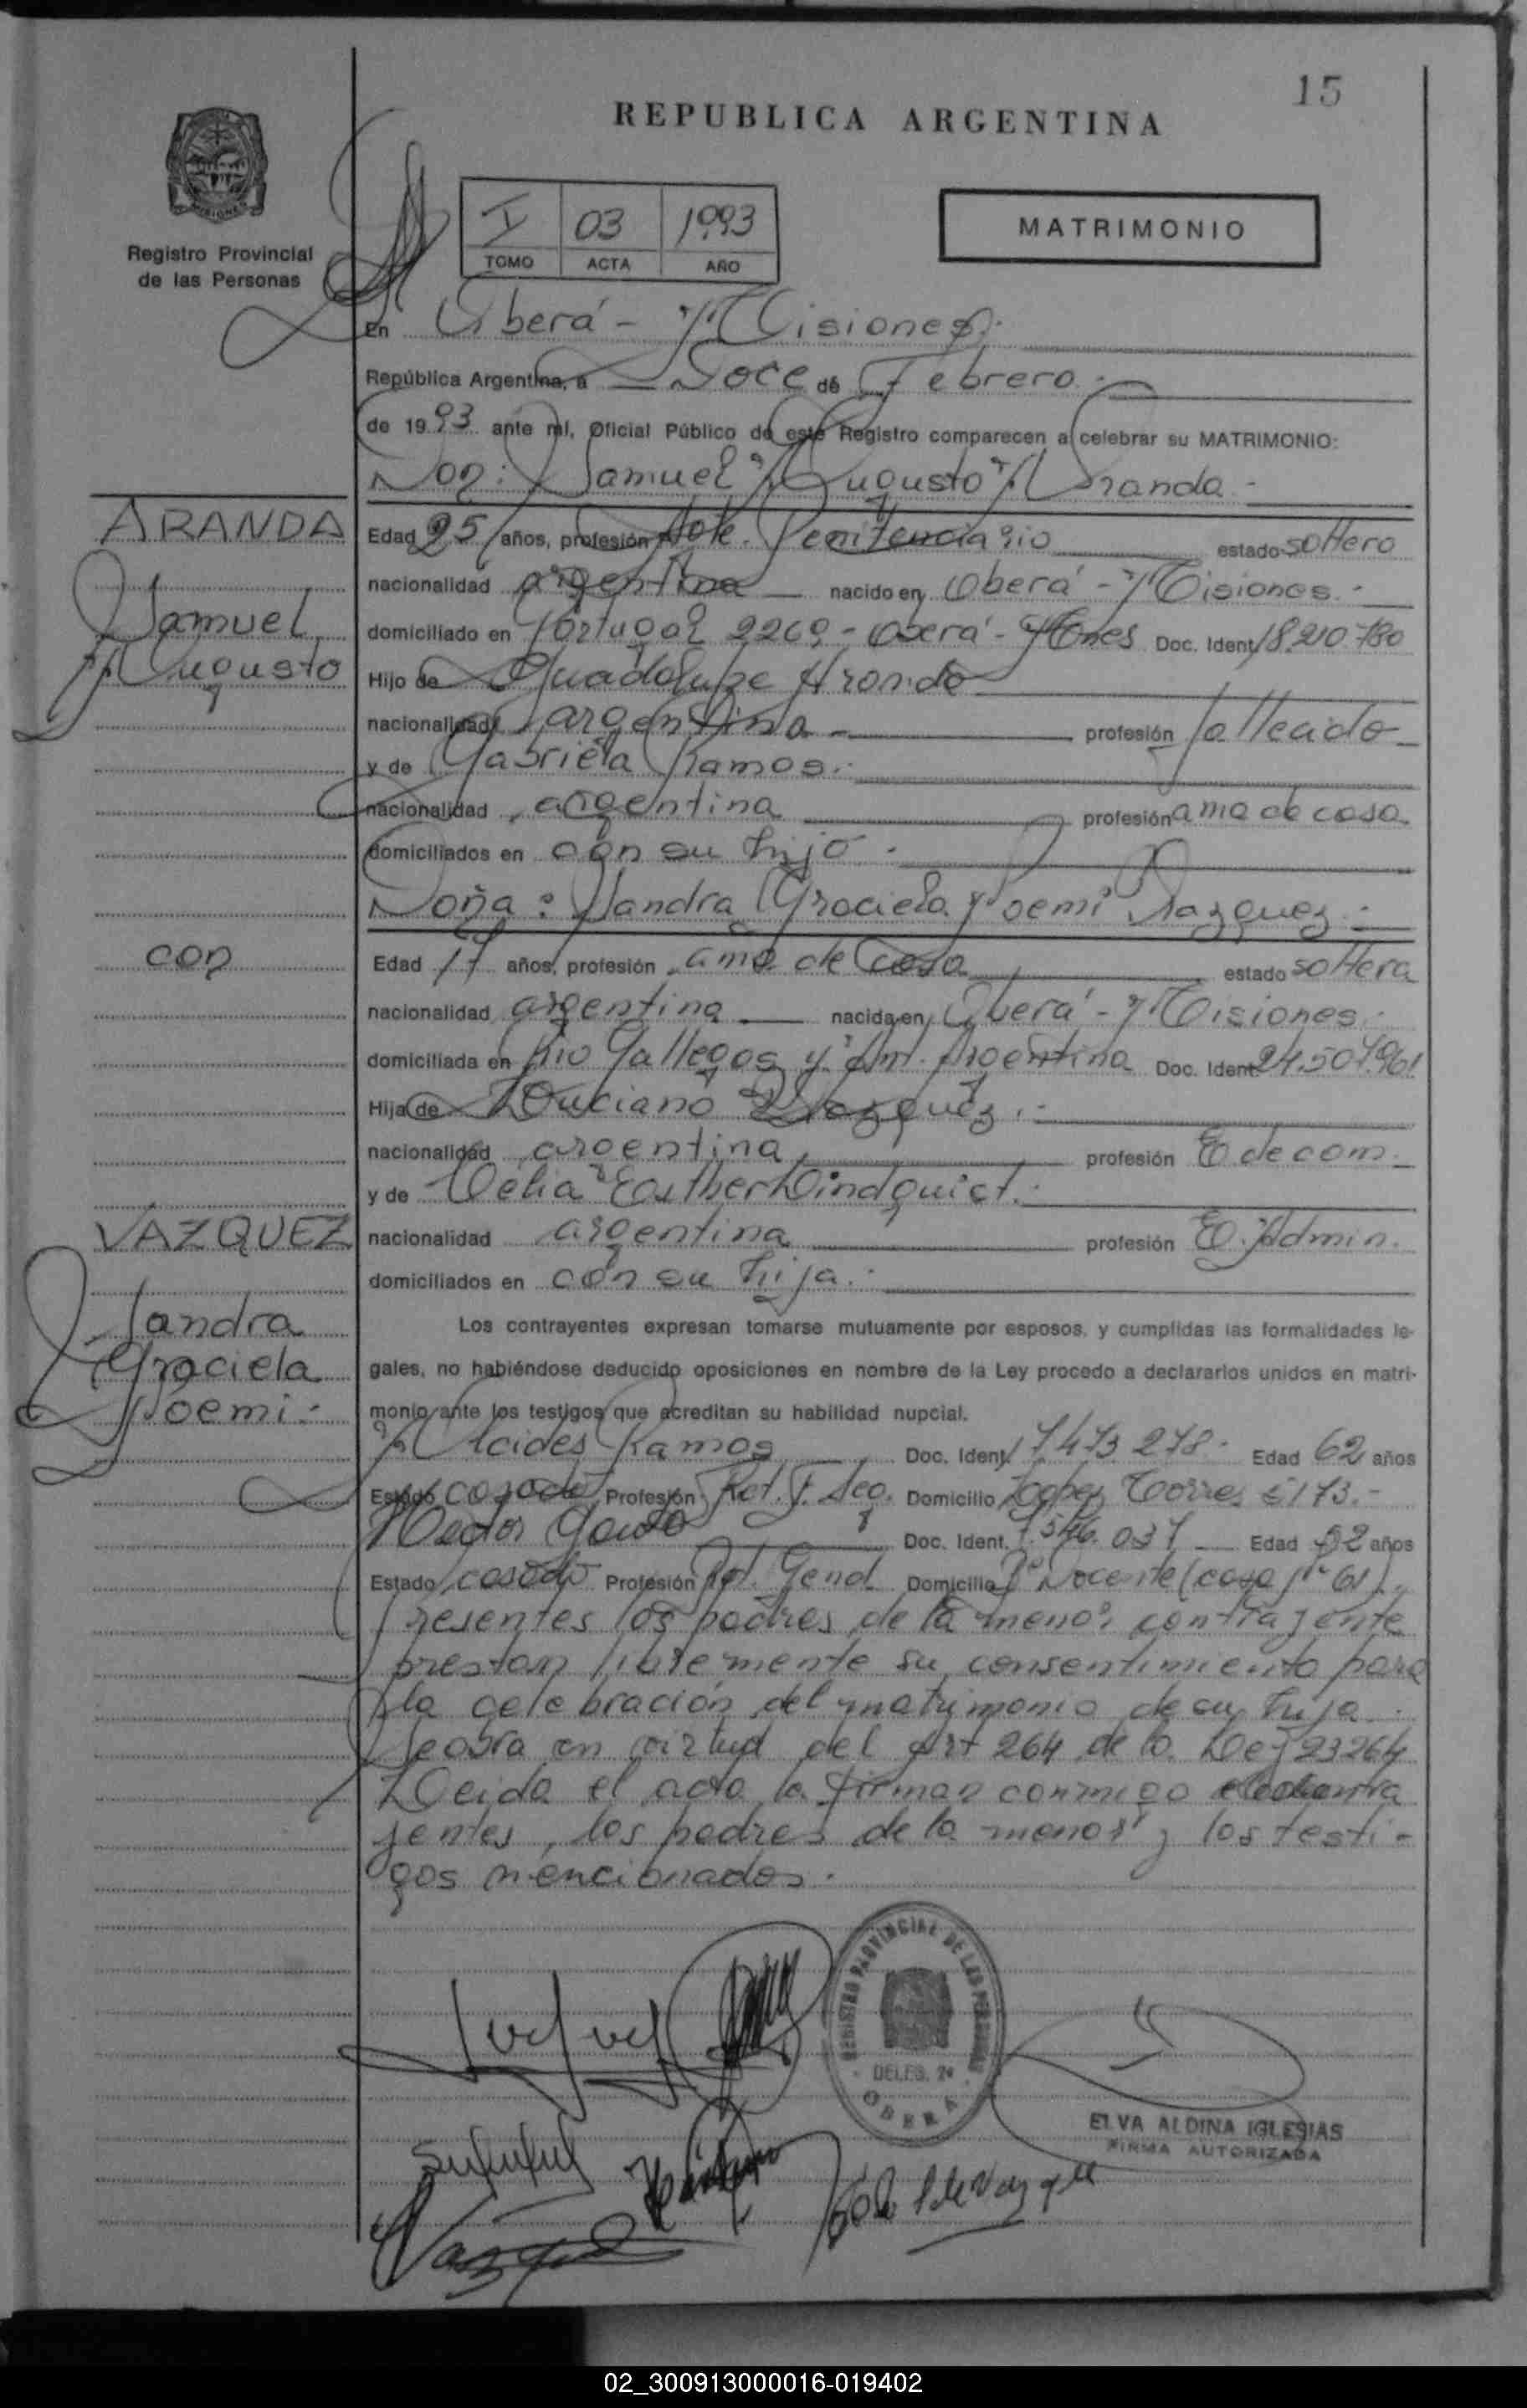 15
REPUBLICA ARGENTINA
MISIONES
Registro Provincial
de las Personas
I 03 1993
TOMO ACTA AÑO
MATRIMONIO
En Oberá - Misiones.
República Argentina, a Doce de Febrero.
de 1993 ante mí, Oficial Público de este Registro comparecen a celebrar su MATRIMONIO:
Don: Samuel Augusto Aranda.-
ARANDA
Samuel
Augusto
Edad 25 años, profesión Agte. Penitenciario estado soltero
nacionalidad argentina nacido en Oberá - Misiones.-
domiciliado en Portugal 2269 - Oberá - Mnes Doc. Ident. 18.210.780
Hijo de Guadalupe Aranda
nacionalidad argentina profesión fallecido
y de Gabriela Ramos.
nacionalidad argentina profesión ama de casa
domiciliados en con su hijo.
Doña: Sandra Graciela Noemi Vazquez.
con
Edad 17 años, profesión ama de casa estado soltera
nacionalidad argentina nacida en Oberá - Misiones.
domiciliada en Rio Gallegos y Ant. Argentina Doc. Ident. 24.507.961
Hija de Luciano Vazquez.
nacionalidad argentina profesión E de com.
y de Delia Esther Lindquist.
VAZQUEZ
Sandra
Graciela
Noemi.-
nacionalidad argentina profesión E. Admin.
domiciliados en con su hija.
Los contrayentes expresan tomarse mutuamente por esposos, y cumplidas las formalidades le-
gales, no habiéndose deducido oposiciones en nombre de la Ley procedo a declararlos unidos en matri-
monio ante los testigos que acreditan su habilidad nupcial.
Alcides Ramos Doc. Ident. 7.473.278. Edad 62 años
Estado casado Profesión Ret. Domicilio Lopez Torres 173.-
Hector Doc. Ident. 7.546.037 Edad 52 años
Estado casado Profesión Ret. Gend. Domicilio Bº Docente (casa Nº 61).
Presentes los padres de la menor contrayente
prestan libremente su consentimiento para
la celebración del matrimonio de su hija.
Se obra en virtud del art 264 de la Ley 23264
Leida el acta la firman conmigo
yentes, los padres de la menor y los testi-
gos mencionados.
REGISTRO PROVINCIAL DE LAS PERSONAS
DELEG. 2ª
OBERA
ELVA ALDINA IGLESIAS
FIRMA AUTORIZADA
02_300913000016-019402